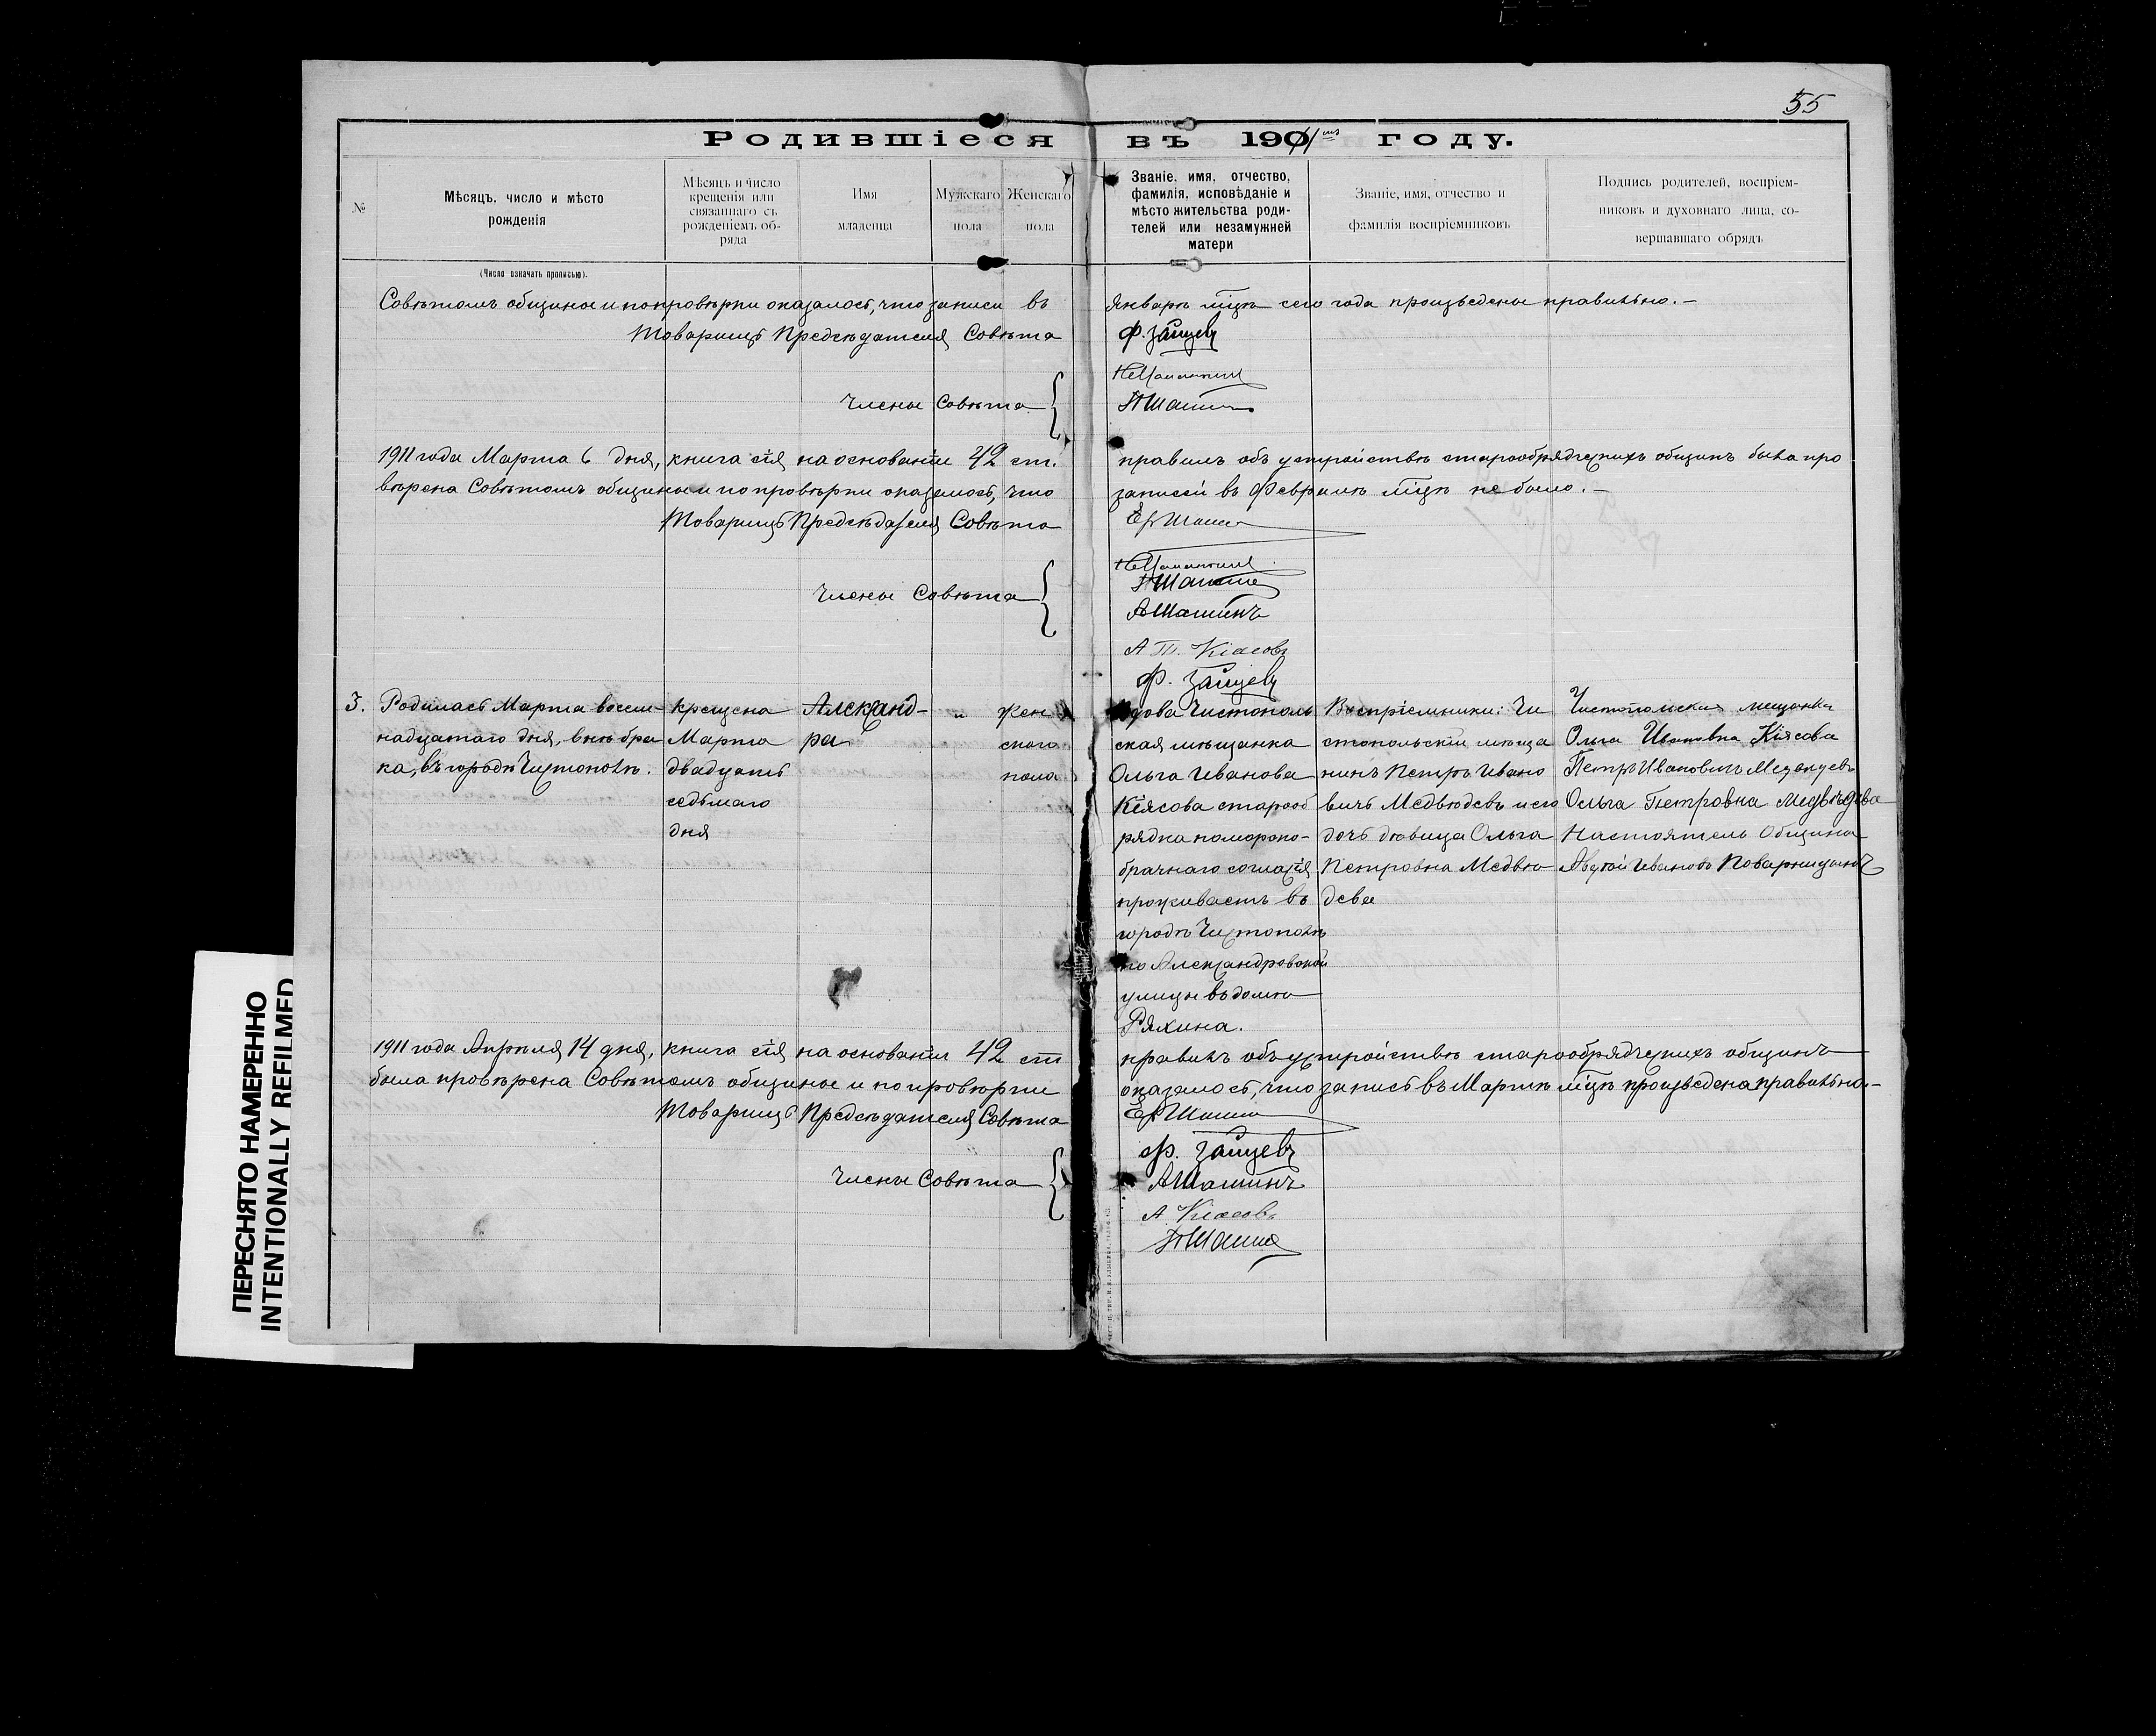 55
Родившіеся въ 1911 году.
№
Мѣсяцъ, число и мѣсто
рожденія
Мѣсяцъ и число
крещенія или
связаннаго съ
рожденіемъ об-
ряда
Имя
младенца
Мужскаго
пола
Женскаго
пола
Званіе, имя, отчество,
фамилія, исповѣданіе и
мѣсто жительства роди-
телей или незамужней
матери
Званіе, имя, отчество и
фамилія воспріемниковъ
Подпись родителей, воспріем-
никовъ и духовнаго лица, со-
вершавшаго обрядъ
(Число означать прописью).
Совѣтомъ общины и по провѣрки оказалось, что записи въ Январѣ мцѣ сего года произведены правильно. —
Товарищъ Предсѣдателя Совѣта Ф. Зайцевъ
Члены Совѣта
1911 года Марта 6 дня, книга сія на основаніи 42 ст. правилъ объ устройствѣ старообрядческихъ общинъ была про
вѣрена Совѣтомъ общины и по провѣрки оказалось, что записей въ Февралѣ мцѣ не было. —
Товарищъ Предсѣдателя Совѣта
Члены Совѣта
АШашинъ
Кіасовъ
Ф. Зайцевъ
3.
Родилась Марта восем-
надцатаго дня, внѣ бра
ка, въ городѣ Чистополѣ.
Крещена
Марта
двадцать
седьмаго
дня
Александ-
ра
"
Жен
скаго
пола
Вдова Чистополь
ская мѣщанка
Ольга Иванова
Кіясова старооб
рядка поморско-
брачнаго согласія
проживаетъ въ
городѣ Чистополѣ
по Александровской
улицы въ домѣ
Ряхина.
Воспріемники: Чи
стопольскій мѣща
нинъ Петръ Ивано
вичъ Медвѣдевъ и его
дочь дѣвица Ольга
Петровна Медвѣ
дева
Чистопольская мещанка
Ольга Ивановна Кіясова
Петръ Ивановичъ Медведевъ
Ольга Петровна Медвѣдева
Настоятель Общины
Авдей Ивановъ Поварницынъ
1911 года Апрѣля 14 дня, книга сія на основаніи 42 ст правилъ объ устройствѣ старообрядческихъ общинъ
была провѣрена Совѣтомъ общины и по провѣрки оказалось, что запись въ Мартѣ мцѣ произведена правильно. —
Товарищъ Предсѣдателя Совѣта
Члены Совѣта
Ф. Зайцевъ
АШашинъ
А Кіасовъ
ПЕРЕСНЯТО НАМЕРЕННО
INTENTIONALLY REFILMED